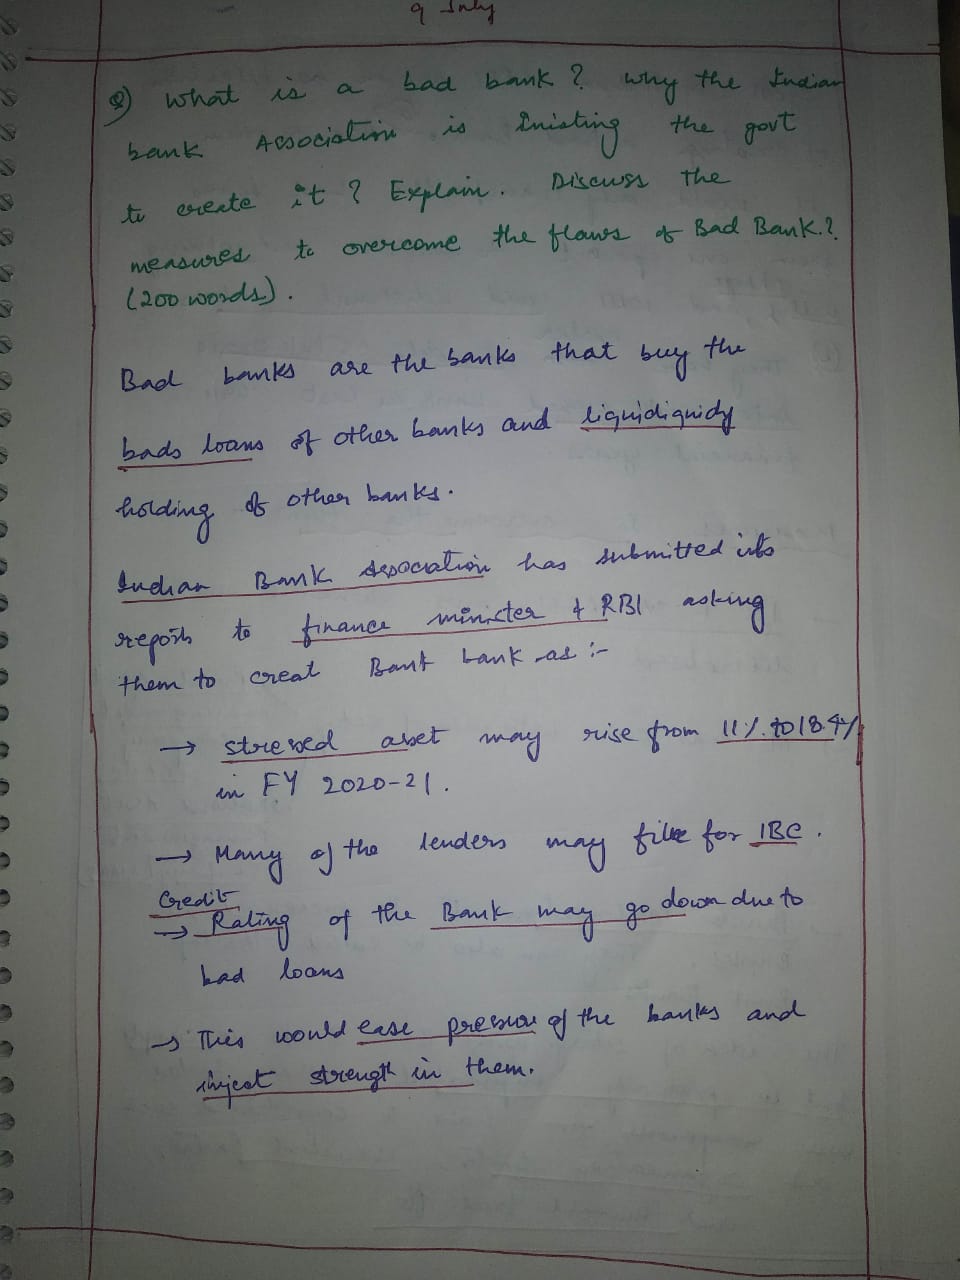 9 July
Q) What is a bad bank? Why the Indian
bank Association is Inisting the govt
to create it? Explain. Discuss the
measures to overcome the flaws of Bad Bank.?
(200 words).
Bad banks are the banks that buy the
bads loans of other banks and liquidiquidy
holding of other banks.
Indian Bank Association has submitted its
report to finance minister & RBI asking
them to creat Bant bank as :-
→ stressed asset may rise from 11%. to 18.4%
in FY 2020-21.
→ Many of the lenders may file for IBC.
Credit
→ Rating of the Bank may go down due to
bad loans
→ This would ease pressure of the banks and
inject strength in them.